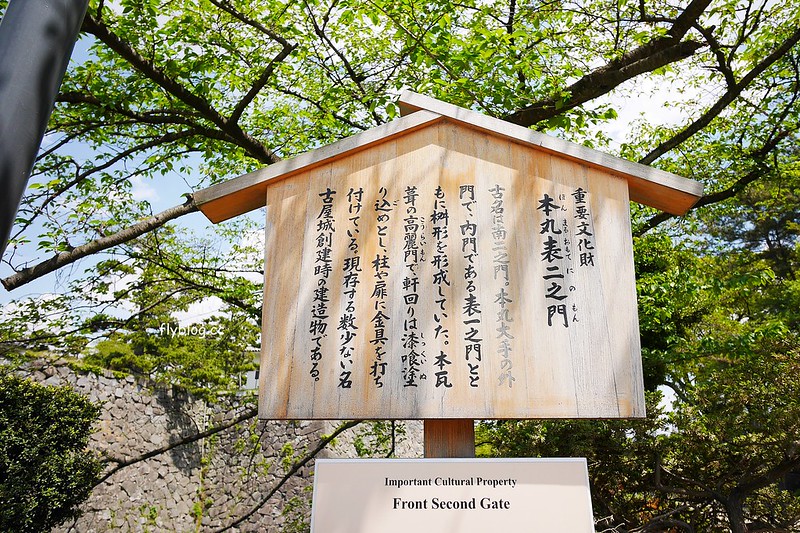 重要文化財
本丸表二之門
ほんまるおもてにのもん
古名は南二之門。本丸大手の外
門で、内門である表一之門とと
もに桝形を形成していた。本瓦
葺の高麗門で軒回りは漆喰塗
こうらいもん
しっくいぬ
り込めとし、柱や扉に金具を打ち
付けている。現存する数少ない名
古屋城創建時の建造物である。
flyblog.cc
Important Cultural Property
Front Second Gate